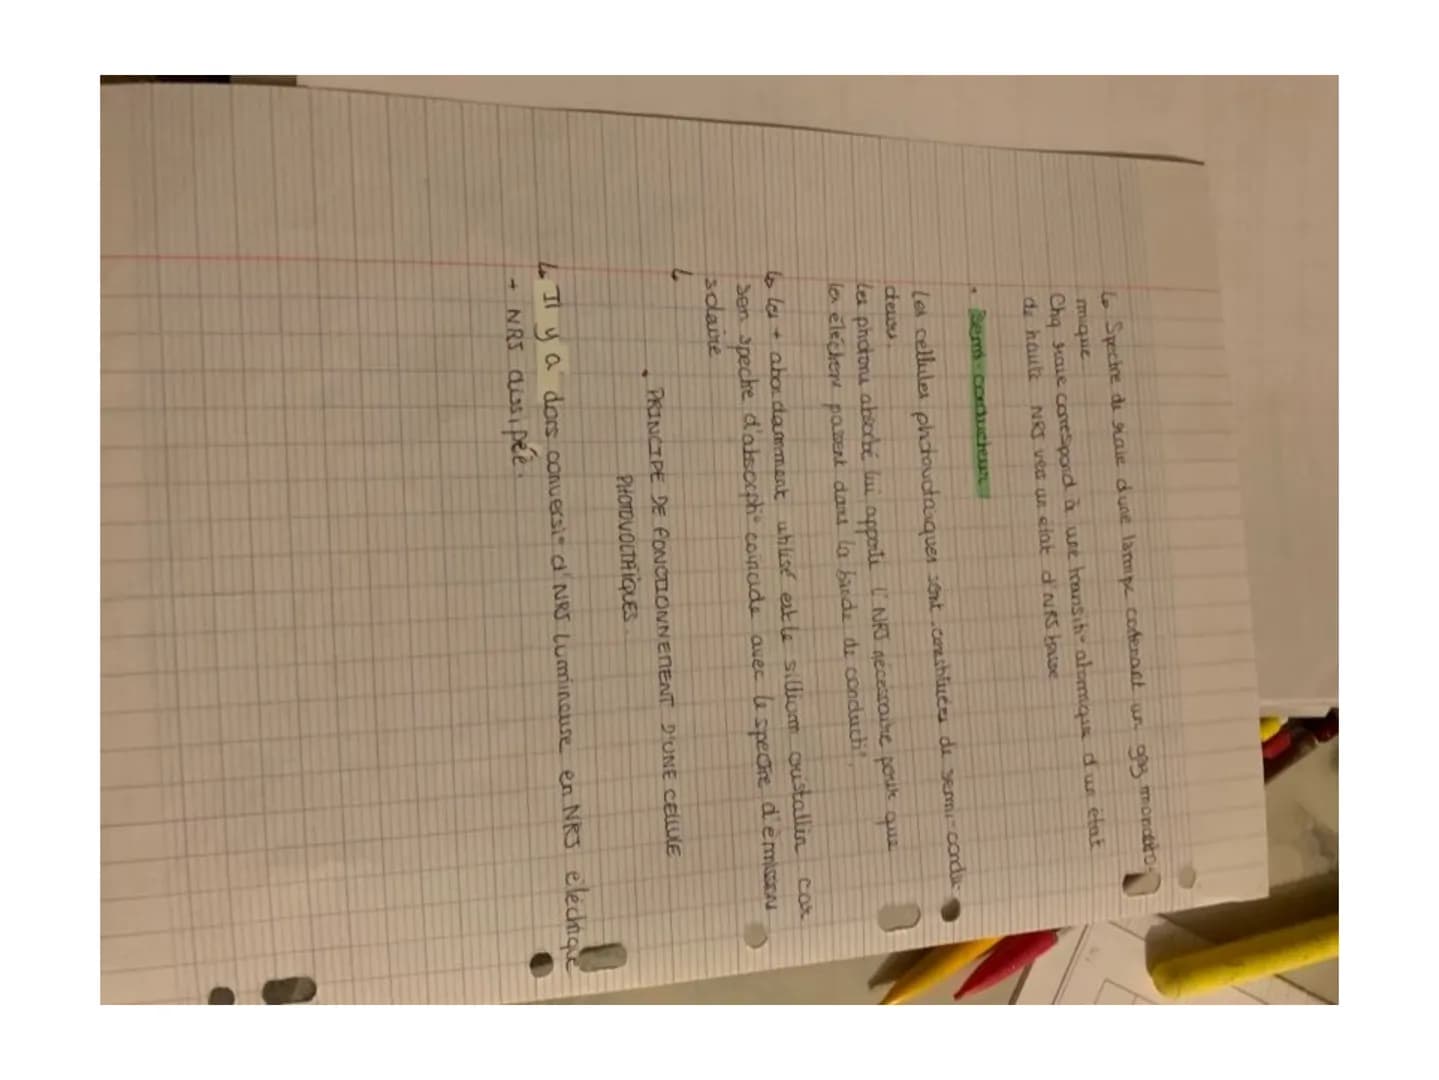 ↳ Spectre de raie d'une lampe contenant un gaz monoato-
mique
Chq raie correspond à une transit° atomique d'un état
de haute NRJ vers un état d'NRJ basse
• Semi-conducteur
Les cellules photovoltaïques sont constituées de semi-conduc-
teurs.
Les photons absorbé lui apporte l'NRJ nécessaire pour que
les électrons passent dans la bande de conducti°.
↳ les + abondamment utilisé est le sillium cristallin car
son spectre d'absorpti° coincide avec le spectre d'émission
solaire
↳
• PRINCIPE DE FONCTIONNEMENT D'UNE CELLULE
PHOTOVOLTAÏQUES.
↳ Il y a dors conversi° d'NRJ lumineuse en NRJ éléctrique
+ NRJ dissipée.